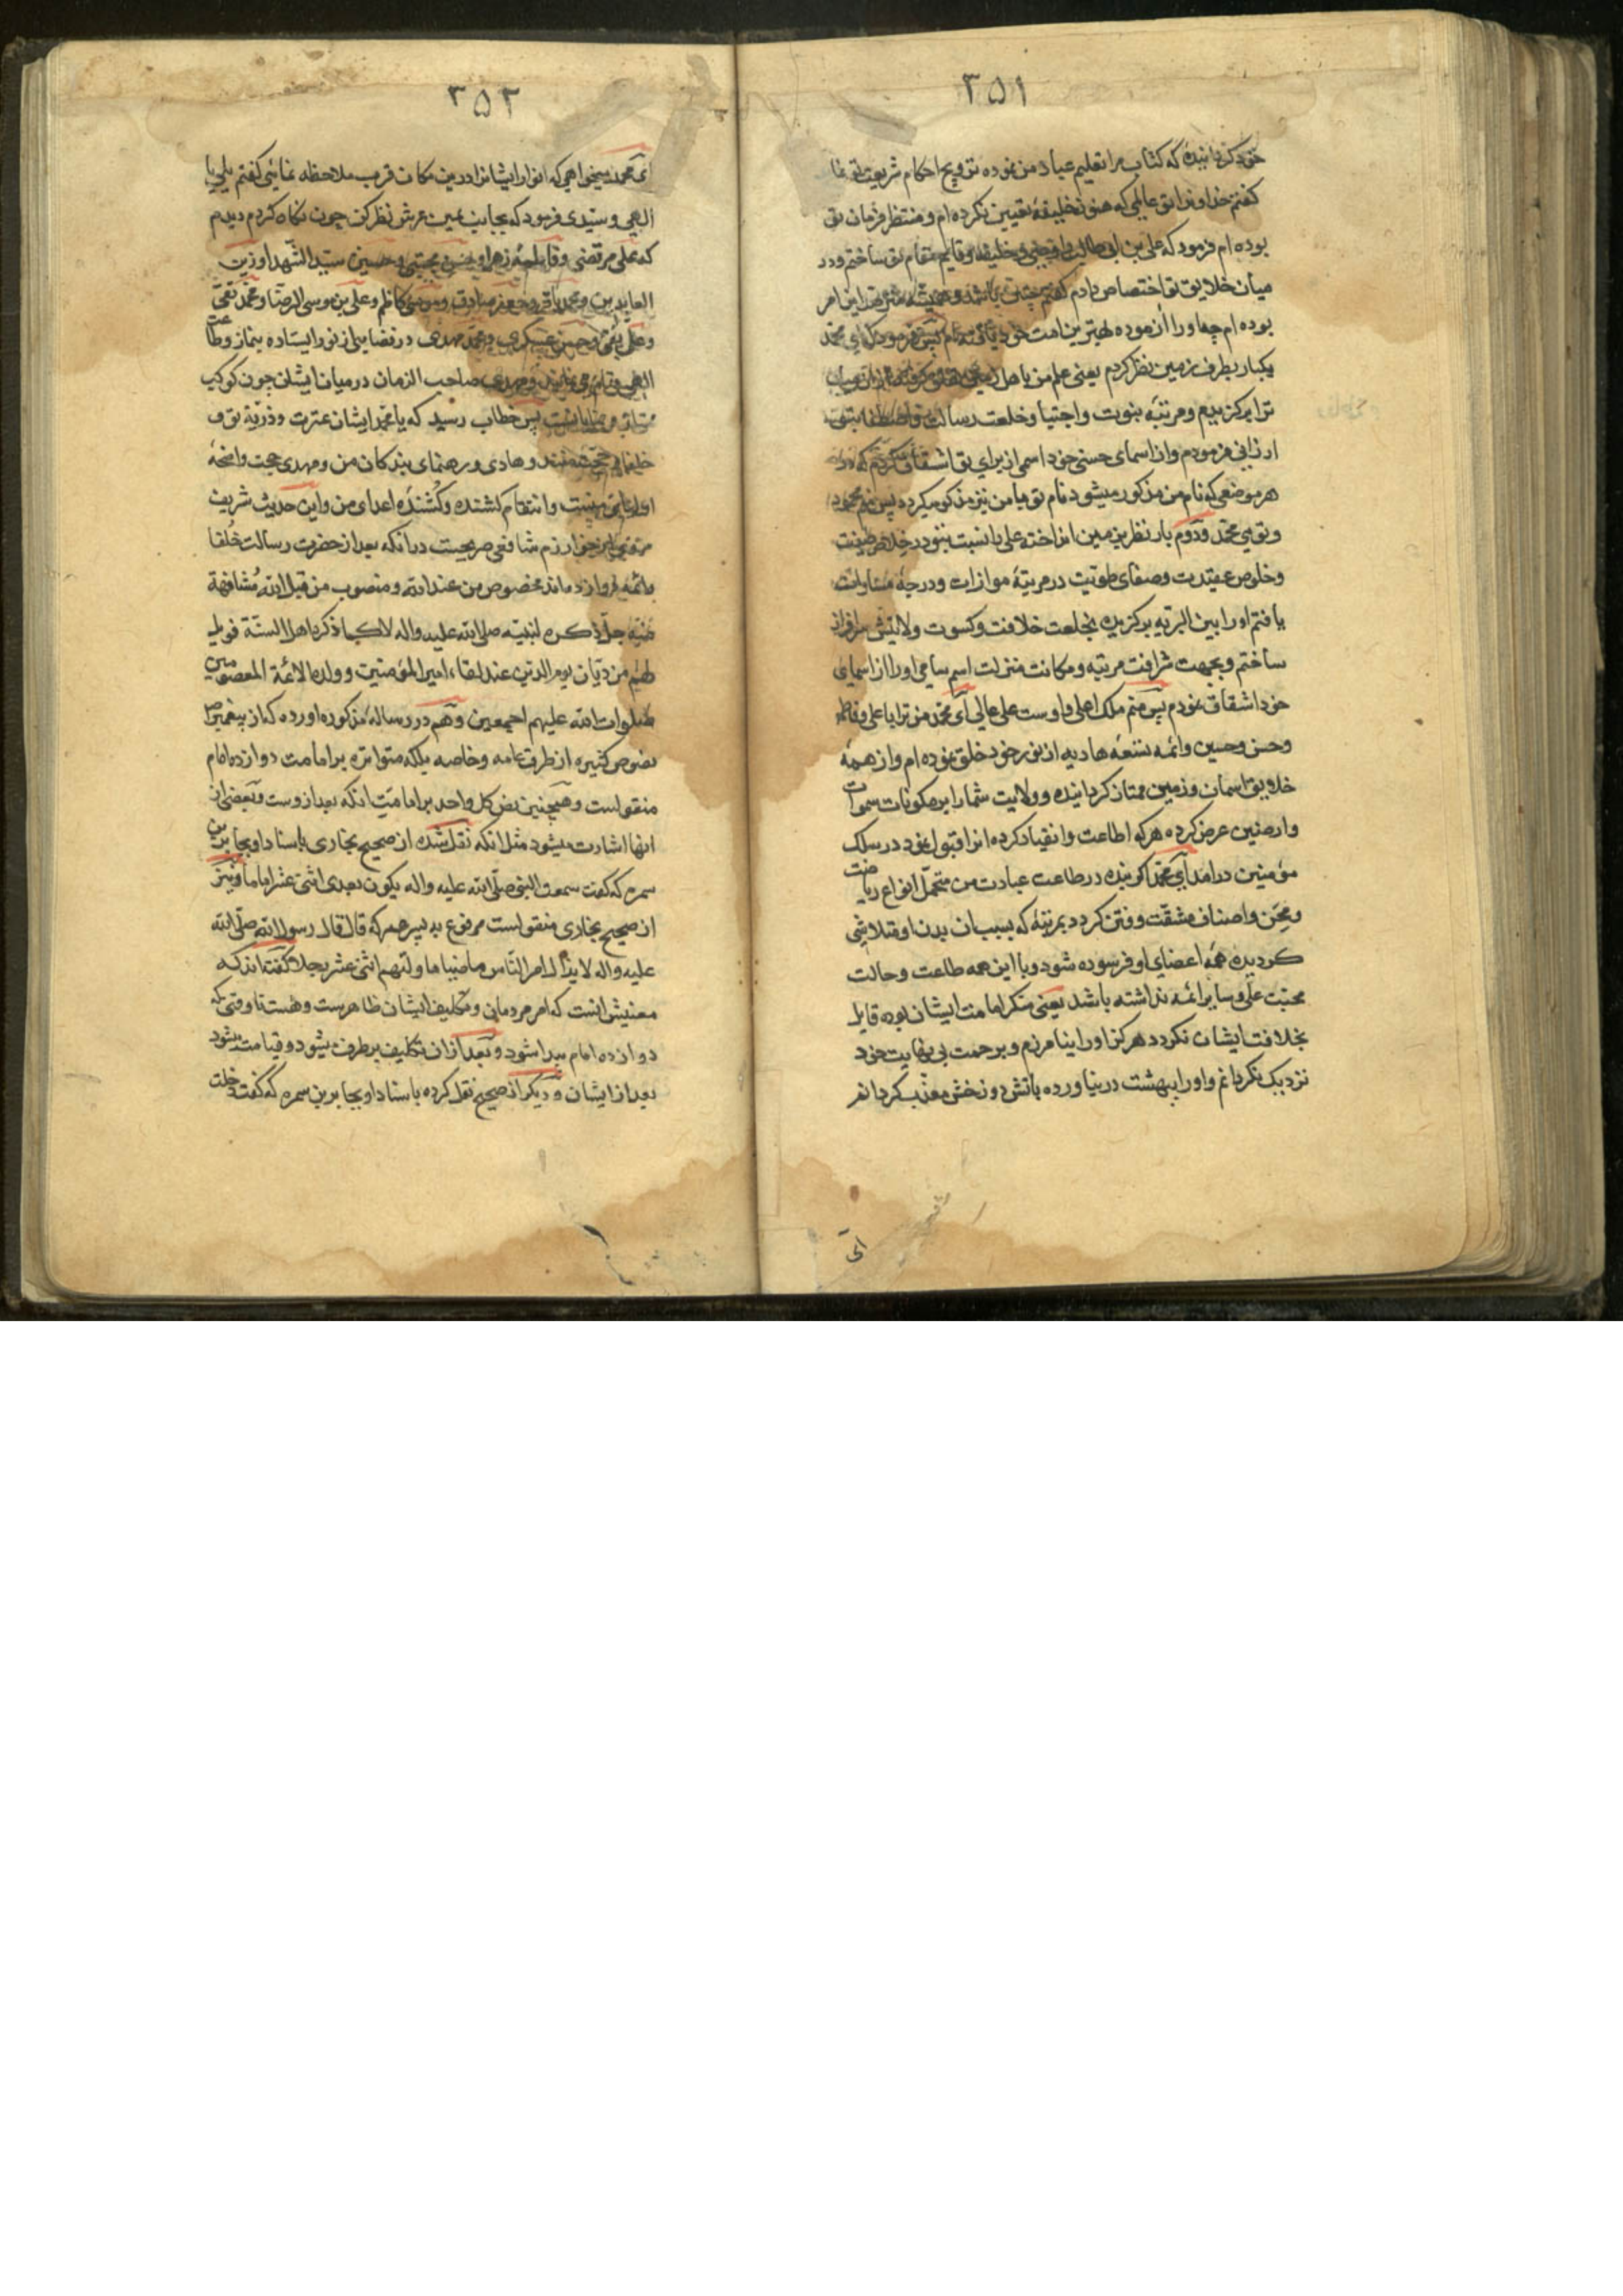 ۳۵۱
خود گردانیده که کتاب مرا تعلیم عباد من نموده ترویج احکام شریعت تو نما
گفتم خداوندا تو عالمی که هنوز خلیفه تعیین نکرده ام و منتظر فرمان تو
بوده ام فرمود که علی بن ابی طالب خلیفه و قایم مقام تو ساختم و در
میان خلایق تو اختصاص دادم گفتم چنین باشد این امر
بوده ام چه او را آزموده بهترین امت خود یافته ام پس فرمود که ای محمد
یکبار بطرف زمین نظر کردم یعنی علم من باهل
ترا برگزیدم و مرتبه نبوت و اجتبا و خلعت رسالت
ارزانی فرمودم و از اسمای حسنی خود اسمی از برای تو اشتقاق کردم که
هر موضعی که نام من مذکور میشود نام تو با من نیز مذکور میگردد پس منم محمود
و تویی محمد و دوم بار نظر بزمین انداخته علی را نسبت بتو در
و خلوص عقیدت و صفای طویت در مرتبهٔ موازات و درجهٔ مساوات
یافتم او را بین البریه برگزیده بخلعت خلافت و کسوت ولایتش سرافراز
ساختم و بجهت شرافت مرتبه و مکانت منزلت اسم سامی او را از اسمای
خود اشتقاق نمودم پس منم ملک اعلی و اوست علی عالی ای محمد من ترا با علی و فاطمه
و حسن و حسین و ائمه تسعه هادیه از نور خود خلق نموده ام و از همهٔ
خلایق اسمان و زمین ممتاز گردانیده و ولایت شما را بر مکونات سموات
و ارضین عرض کرده هر که اطاعت و انقیاد کرده انرا قبول نمود در سلک
مؤمنین درامد ای محمد اگر بنده در طاعت عبادت من متحمل انواع ریاضت
و محن و اصناف مشقت و فتن گردد بمرتبهٔ که بسبب ان بدن او متلاشی
گردیده همهٔ اعضای او فرسوده شود و با این همه طاعت و حالت
محبت علی و سایر ائمه نداشته باشد یعنی منکر امامت ایشان بوده قایل
بخلافت ایشان نگردد هرگز او را نیامرزم و برحمت بی نهایت خود
نزدیک نگردانم و او را ببهشت در نیاورده باتش دوزخش معذب گردانم
ای
۳۵۲
ای محمد میخواهی که انوار ایشانرا در این مکان قرب ملاحظه نمائی گفتم بلی یا
الهی و سیدی فرمود که بجانب یمین عرش نظر کن چون نگاه کردم دیدم
که علی مرتضی و فاطمهٔ زهرا و حسن مجتبی و حسین سید الشهدا و زین
العابدین و محمد باقر و جعفر صادق و موسی کاظم و علی بن موسی الرضا و محمد تقی
و علی نقی و حسن عسکری و محمد مهدی در فضایی از نور ایستاده بنماز و طاعت
الهی قیام می نمایند و مهدی صاحب الزمان در میان ایشان چون کوکب
پس خطاب رسید که یا محمد ایشان عترت و ذریهٔ تو و
و هادی و رهنمای بندگان من و مهدی حجت واضحهٔ
اولیای منست و انتقام کشنده و کُشندهٔ اعدای من و این حدیث شریف
خوارزم شافعی صریحست در انکه بعد از حضرت رسالت خُلفا
و ائمه دوازده اند مخصوص من عند الله و منصوب من قبل الله مشافهة
جل ذکره لنبیه صلی الله علیه واله لا کما ذکره اهل السنة فویل
لهم من دیان یوم الدین عند لقاء امیر المؤمنین و ولده الائمة المعصومین
صلوات الله علیهم اجمعین و هم در رسالهٔ مذکوره اورده که از پیغمبر ص
نصوص کثیره از طرف عامه و خاصه بلکه متواتره بر امامت دوازده امام
منقولست و همچنین نص کل واحد بر امامت انکه بعد از وست و بعضی از
انها اشارت میشود مثل انکه نقل شده از صحیح بخاری باسناد او بجابر بن
سمره که گفت سمعت النبی صلی الله علیه واله یکون بعدی اثنی عشر اماما و نیز
از صحیح بخاری منقولست مرفوع به پسر عمر که قال قال رسول الله صلی الله
علیه واله لا یزال امر الناس ماضیا ما ولیهم اثنی عشر رجلا گفته اند که
معنیش انست که امر مردمان و تکلیف ایشان ظاهرست و هست تا وقتی که
دوازده امام پیدا شود و بعد از ان تکلیف برطرف میشود و قیامت میشود
بعد از ایشان و دیگر از صحیح نقل کرده باسناد او بجابر بن سمره که گفت دخلت